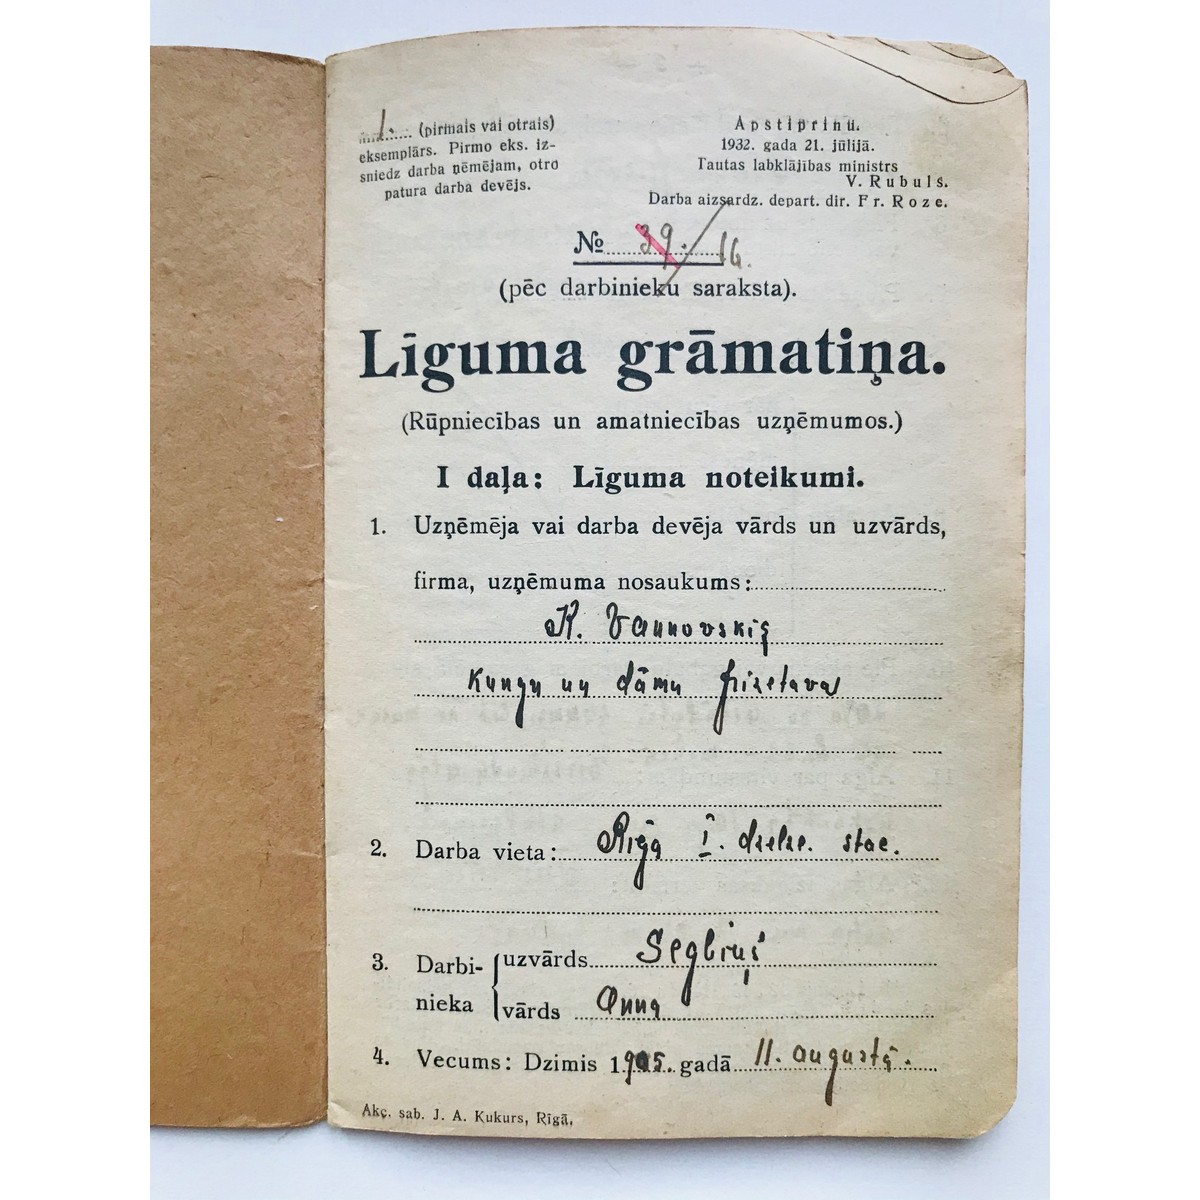 1. (pirmais vai otrais)
eksemplārs. Pirmo eks. iz-
sniedz darba ņēmējam, otro
patura darba devējs.
Apstiprinu.
1932. gada 21. jūlijā.
Tautas labklājības ministrs
V. Rubuls.
Darba aizsardz. depart. dir. Fr. Roze.
№ 39. / 16.
(pēc darbinieku saraksta).
Līguma grāmatiņa.
(Rūpniecības un amatniecības uzņēmumos.)
I daļa: Līguma noteikumi.
1. Uzņēmēja vai darba devēja vārds un uzvārds,
firma, uzņēmuma nosaukums:
K. Vannovskis
Kungu un dāmu frizetava
2. Darba vieta: Rīgā I. dzelzc. stac.
3. Darbi- uzvārds Segliņš
nieka vārds Anna
4. Vecums: Dzimis 1905. gadā 11. augustā.
Akc. sab. J. A. Kukurs, Rīgā,